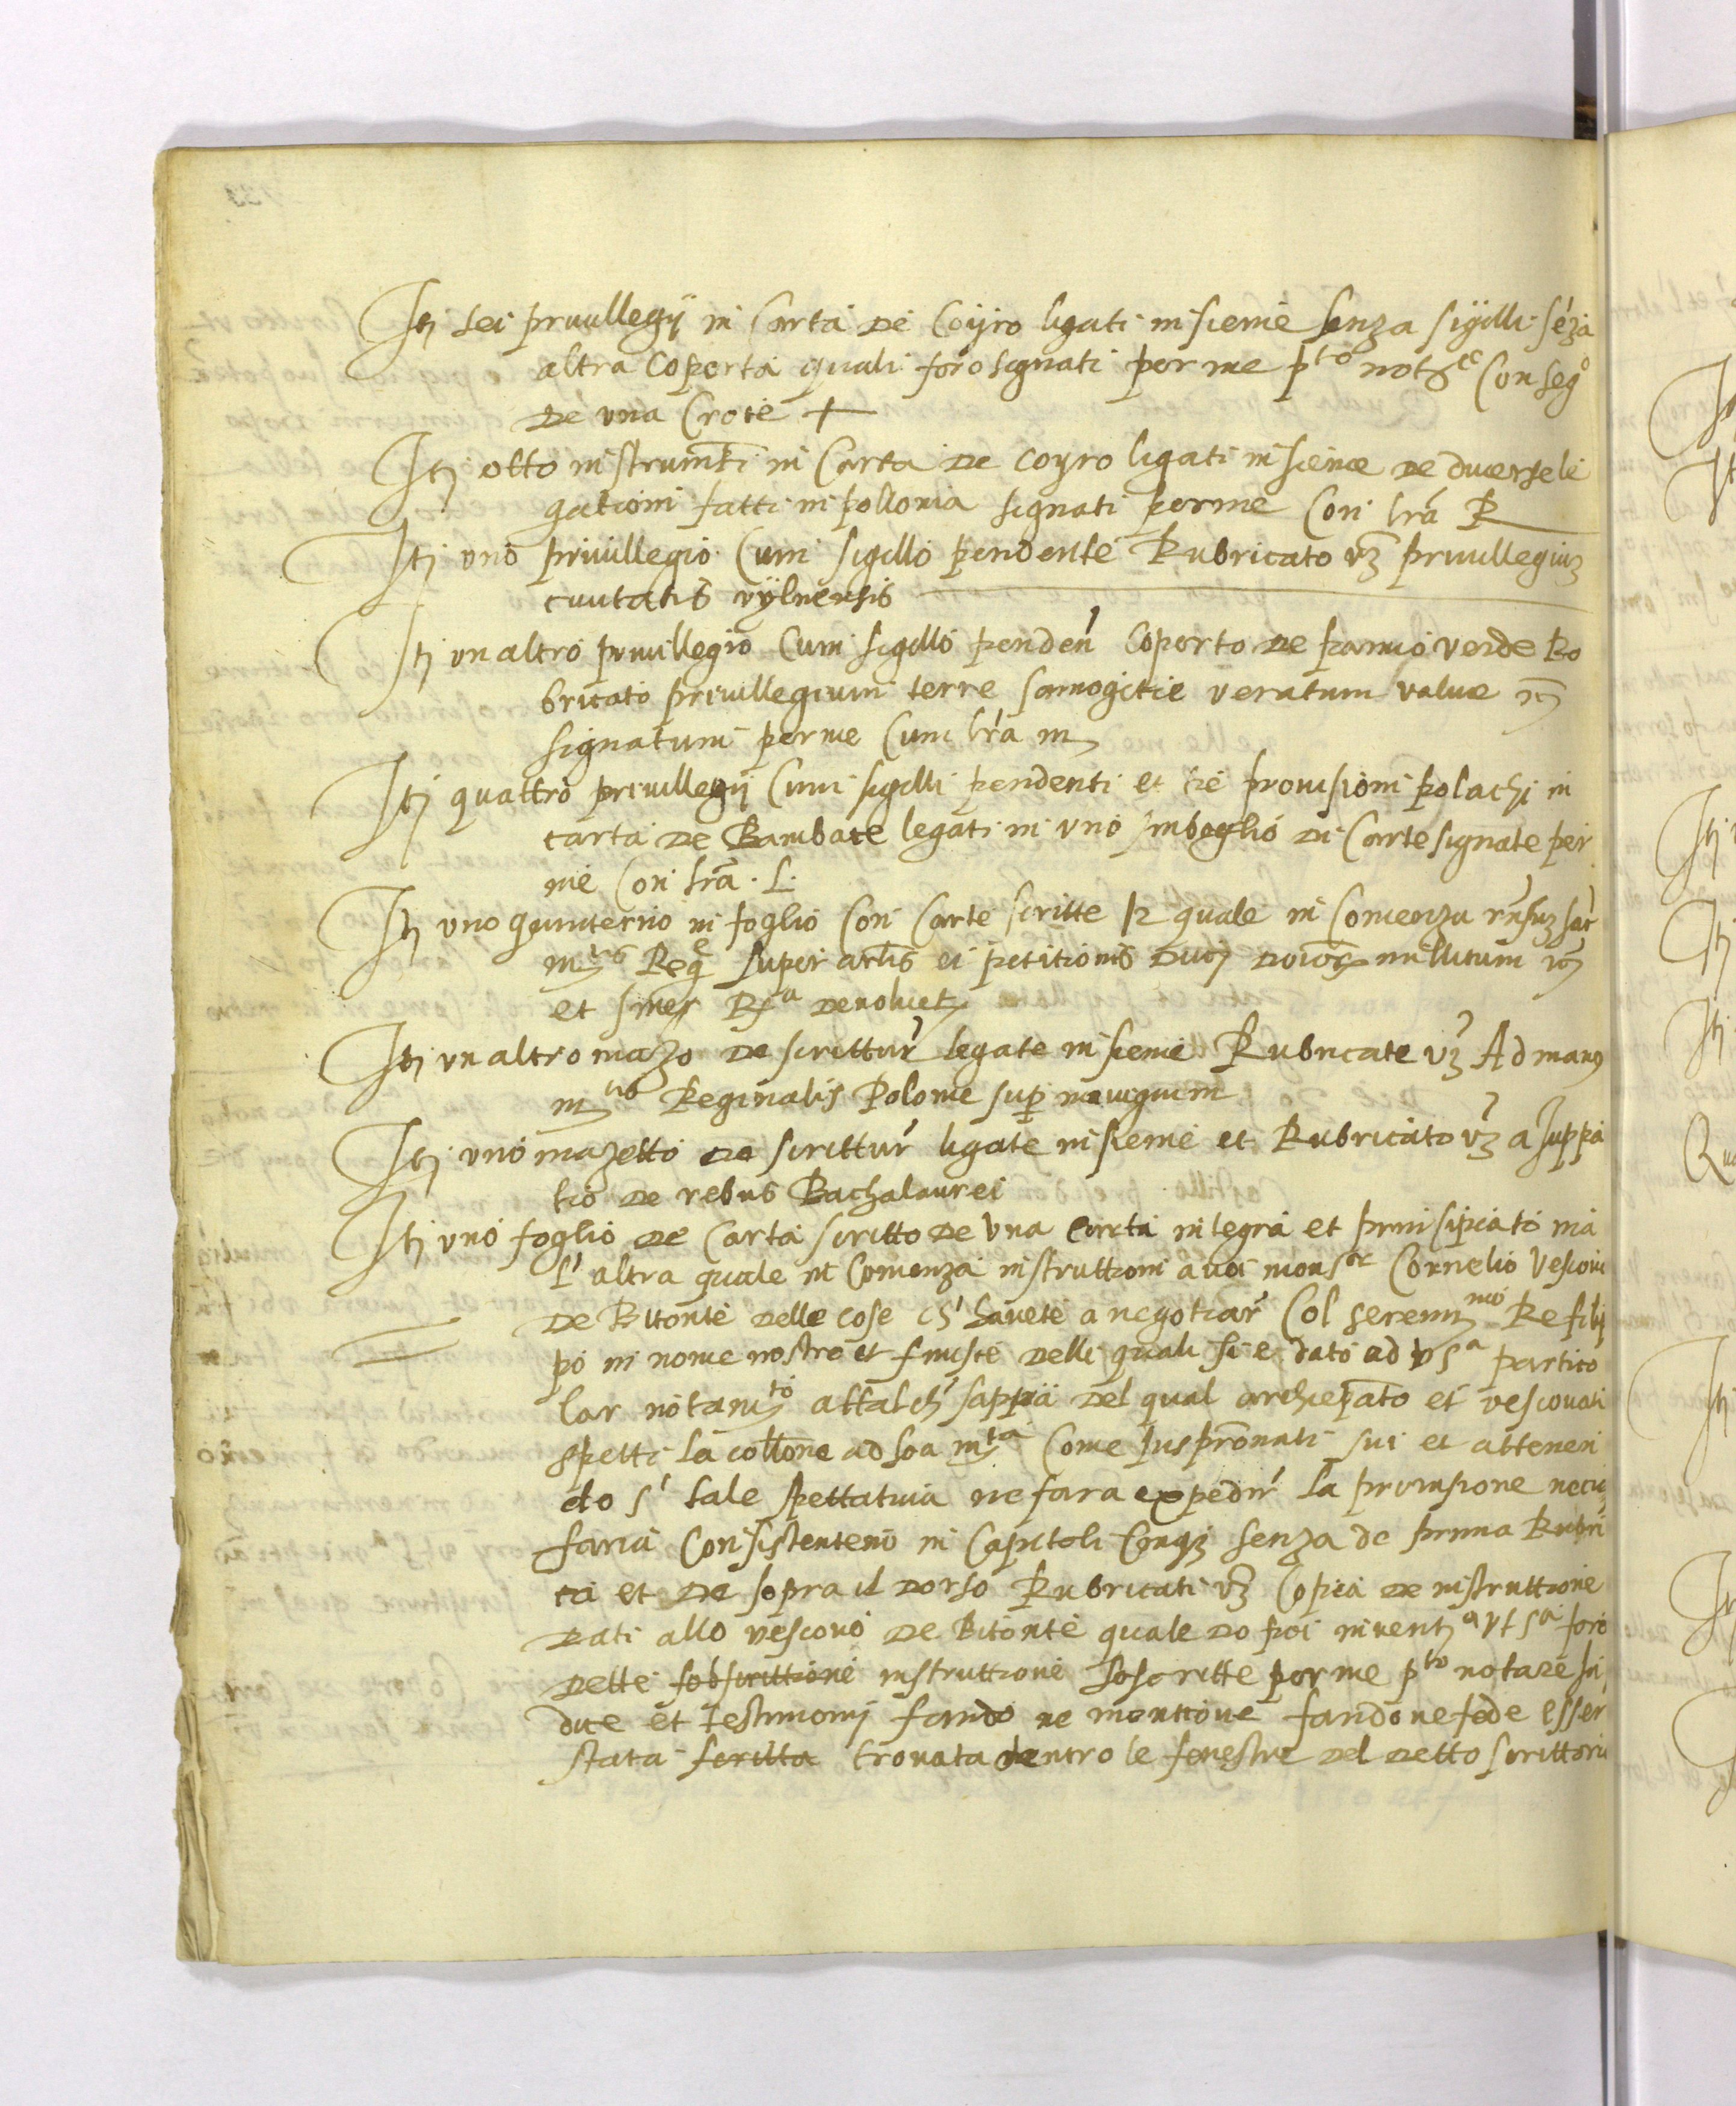 Itj sei privillegij in Carta de Coyro ligati insieme senza sigilli séza
altra Coperta quali foro signati per me p^to not^e Con seg^o
de una Croce +
Itj otto instrumti in Carta de Coyro ligati insieme de diverse li
gationi fatti in pollonia signati per me Con lra R
Itj uno privillegio Cum sigillo pendente Rubricato vz privillegiuz
civitatis vÿlnensis
Itj un altro privillegio Cum sigillo penden Coperto de panno verde Ro
bricato privillegium terre samogitie veratum value
signatum per me Cum lra m
Itj quattro privillegij Cum sigilli pendenti et tre provisioni polachi in
carta de Bambace legati in uno Imboglio di Carte signate per
me Con lra . L .
Itj uno quinterno in foglio Con Carte scritte 12 quale in Comenza
m^tis Reg^e super artis et petitionis
et
Itj un altro mazo de scrittur legate insieme Rubricate vz Ad man9
m^tis Reginalis Polonie sup
Itj uno mazetto de scrittur ligate insieme et Rubricato vz a suppa
tio de rebus Bachalaurei
Itj uno foglio de Carta scritto de una Carta integra et principiato in a
l' altra quale in Comenza instruttioni a voi mons^or Cornelio Vescovo
de Bitonte delle cose ch' havete a negotiar Col seren^mo Re filip
po in nome nostro et finisce delli quali si e dato ad VS^a partico
lar notam^to attal ch sappia del qual archiepato et vescovati
spetti la collone ad soa m^ta Come juspronati sui et attenen
do s' tale spettativa ne fara expedir la provisione neces
saria Consistenteno in Capitoli Cinq3 senza de prima Rubri
ca et de sopra il dorso Rubricati vz Copia de instruttione
dati allo vescovo de Bitonte quale do poi foro
dette sobscrittione instruttione soscritte per me p^to notare
dice et testimonij fando ne mentione fandone fede esser
stata scritta trovata dentro le fenestre del detto scrittorio